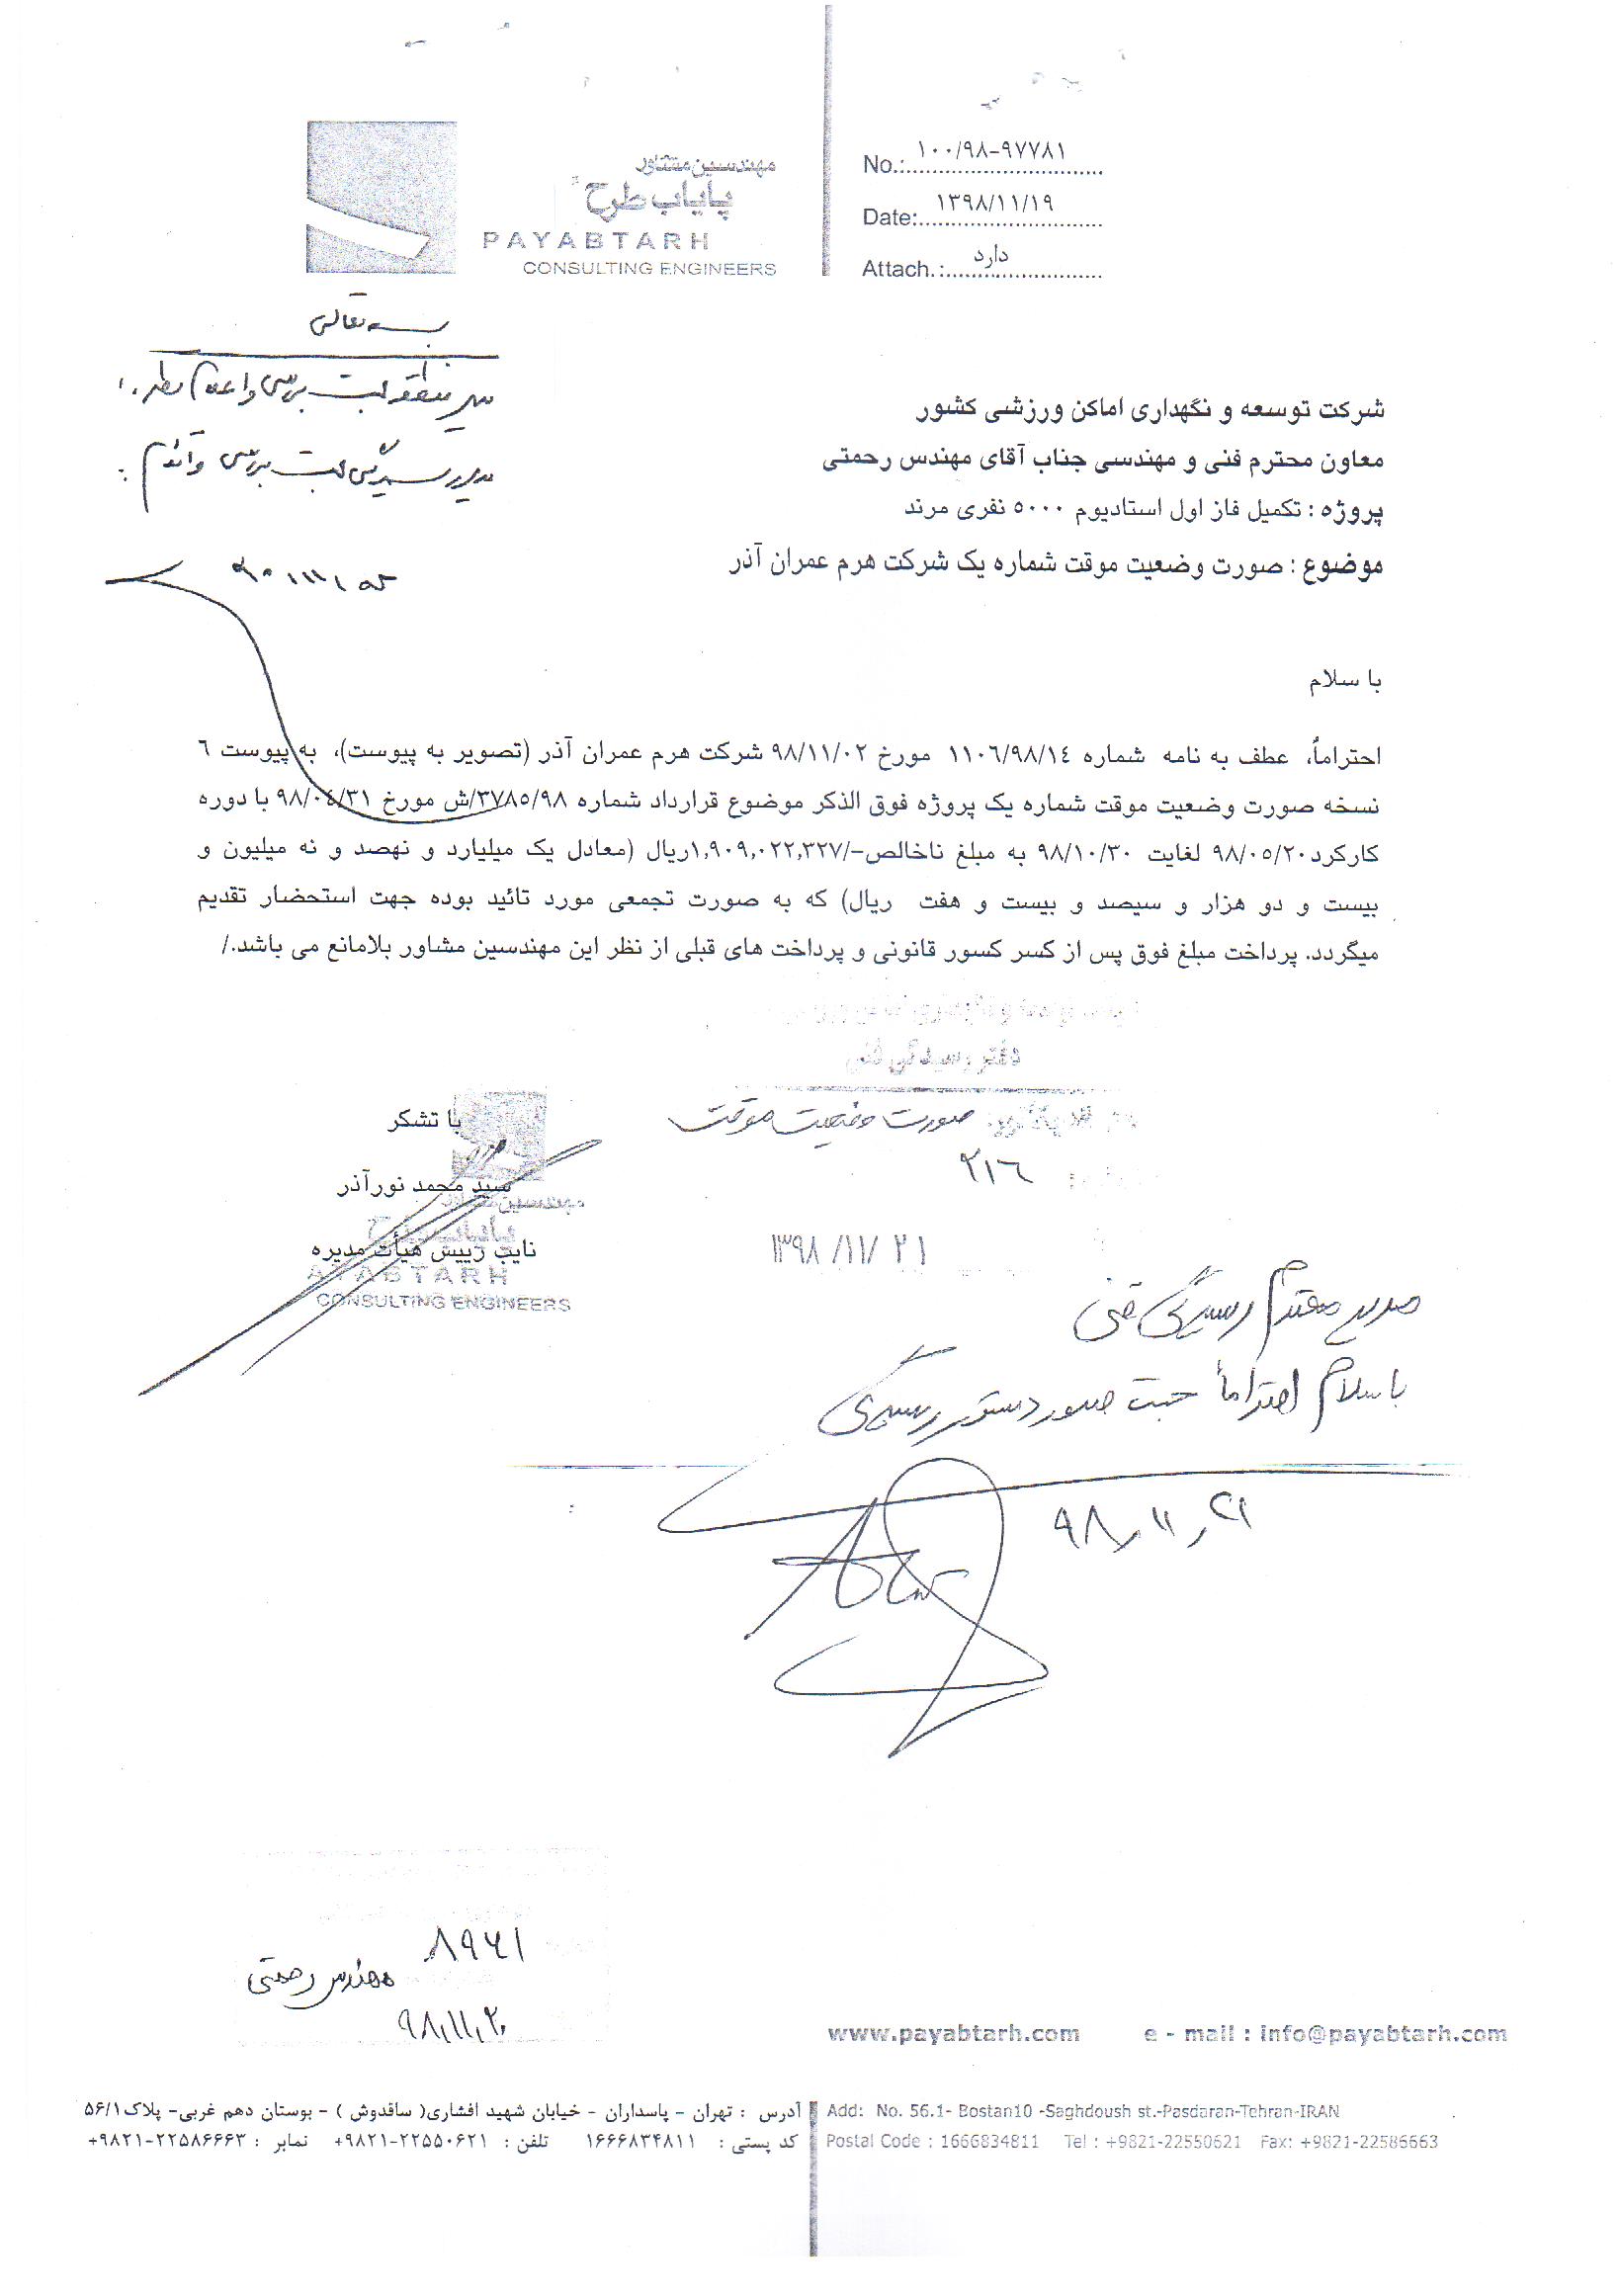 مهندسین مشاور
پایاب طرح
PAYABTARH
CONSULTING ENGINEERS
No.: ۱۰۰/۹۸-۹۷۷۸۱
Date: ۱۳۹۸/۱۱/۱۹
Attach.: دارد
بسمه تعالی
شرکت توسعه و نگهداری اماکن ورزشی کشور
معاون محترم فنی و مهندسی جناب آقای مهندس رحمتی
پروژه : تکمیل فاز اول استادیوم ۵۰۰۰ نفری مرند
موضوع : صورت وضعیت موقت شماره یک شرکت هرم عمران آذر
با سلام
احتراماً، عطف به نامه شماره ۱۱۰۶/۹۸/۱٤ مورخ ۹۸/۱۱/۰۲ شرکت هرم عمران آذر (تصویر به پیوست)، به پیوست ٦
نسخه صورت وضعیت موقت شماره یک پروژه فوق الذکر موضوع قرارداد شماره ۳۷۸۵/۹۸/ش مورخ ۹۸/۰٤/۳۱ با دوره
کارکرد۹۸/۰۵/۲۰ لغایت ۹۸/۱۰/۳۰ به مبلغ ناخالص-/۱,۹۰۹,۰۲۲,۳۲۷ریال (معادل یک میلیارد و نهصد و نه میلیون و
بیست و دو هزار و سیصد و بیست و هفت ریال) که به صورت تجمعی مورد تائید بوده جهت استحضار تقدیم
میگردد. پرداخت مبلغ فوق پس از کسر کسور قانونی و پرداخت های قبلی از نظر این مهندسین مشاور بلامانع می باشد./
دفتر رسیدگی فنی
صورت وضعیت موقت
۲۱٦
۱۳۹۸/۱۱/۲۱
با تشکر
سید محمد نورآذر
نایب رییس هیأت مدیره
مهندسین مشاور
پایاب طرح
PAYABTARH
CONSULTING ENGINEERS
مدیر محترم رسیدگی فنی
با سلام احتراماً جهت صدور دستور رسیدگی
۹۸،۱۱،۲۱
۸۹۶۱
مهندس رحمتی
۹۸،۱۱،۲۰
www.payabtarh.com e - mail : info@payabtarh.com
آدرس : تهران - پاسداران - خیابان شهید افشاری( ساقدوش ) - بوستان دهم غربی- پلاک۵۶/۱
کد پستی : ۱۶۶۶۸۳۴۸۱۱ تلفن : ۲۲۵۵۰۶۲۱-۹۸۲۱+ نمابر : ۲۲۵۸۶۶۶۳-۹۸۲۱+
Add: No. 56.1- Bostan10 -Saghdoush st.-Pasdaran-Tehran-IRAN
Postal Code : 1666834811 Tel : +9821-22550621 Fax: +9821-22586663